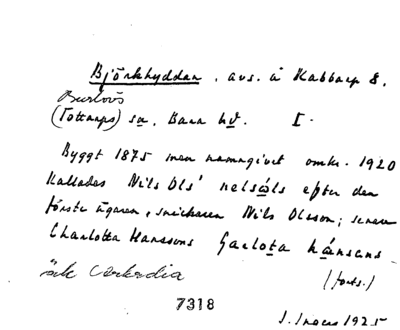 Björkhyddan, avs. å Kabbarp 8,
Burlövs
(Tottarps) sn, Bara hd. I.
Byggt 1875 men namngivet omkr. 1920
Kallades Nils Ols' nelsåls efter den
förste ägaren, snickaren Nils Olsson; senare
Charlotta Hanssons Sarlota hånsans
(forts.)
7318
J. Ingers 1925